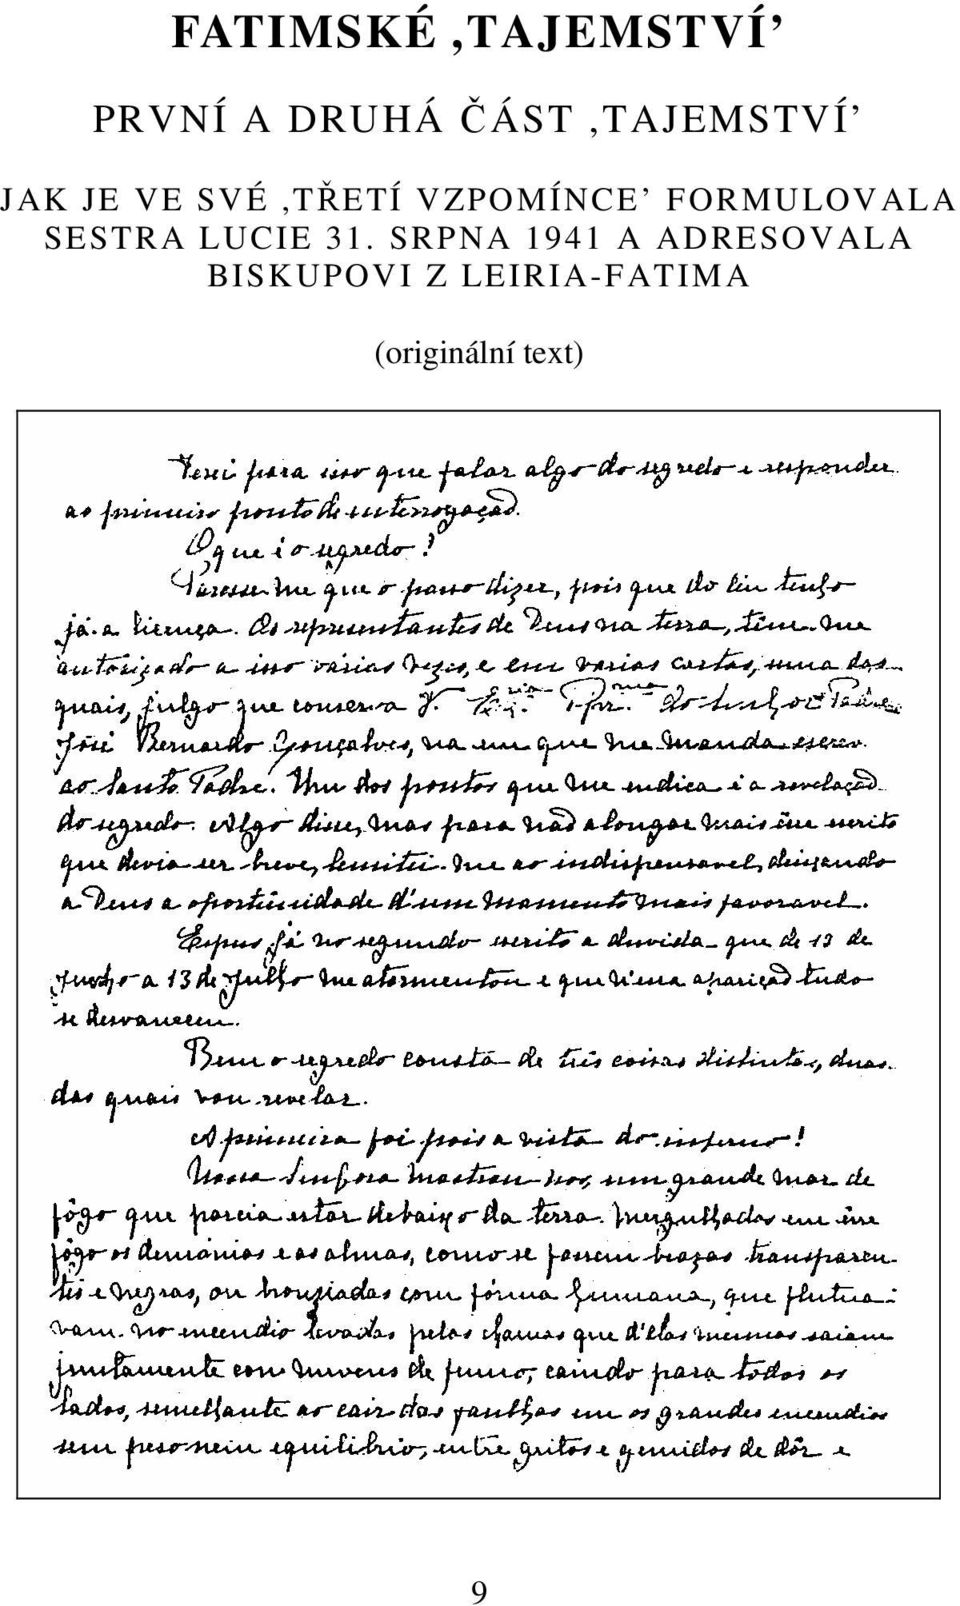 FATIMSKÉ ‚TAJEMSTVÍ’
PRVNÍ A DRUHÁ ČÁST ‚TAJEMSTVÍ’
JAK JE VE SVÉ ‚TŘETÍ VZPOMÍNCE’ FORMULOVALA
SESTRA LUCIE 31. SRPNA 1941 A ADRESOVALA
BISKUPOVI Z LEIRIA-FATIMA
(originální text)
Terei para isso que falar algo do segredo e responder
ao primeiro ponto de interrogação.
O que é o segredo?
Paresse-me que o posso dizer, pois que do Ceu tenho
já a licença. Os representantes de Deus na terra, têm-me
autorizado a isso várias vezes, e em varias cartas, uma das
quais, julgo que conserva V. Ex.cia Rev.ma do Senhor Padre
José Bernardo Gonçalves, na em que me manda escrever
ao Santo Padre. Um dos pontos que me indica é a revelação
do segredo. Algo disse, mas para não alongar mais êsse escrito
que devia ser breve, lemitei-me ao indispensavel, deixando
a Deus a oportunidade d'um momento mais favoravel.
Expus já no segundo escrito a duvida que de 13 de
Junho a 13 de Julho me atormentou e que n'essa aparição tudo
se desvaneceu.
Bem o segredo consta de três coisas distintas, duas
das quais vou revelar.
A primeira foi pois a vista do inferno!
Nossa Senhora mostrou-nos um grande mar de
fôgo que parcia estar debaixo da terra. Mergulhados em êsse
fôgo os demónios e as almas, como se fossem brazas transparen-
tes e negras, ou bronziadas com fórma humana, que flutua-
vam no encendio levadas pelas chamas que d'elas mesmas saiam
juntamente com nuvens de fumo, caindo para todos os
lados, semelhante ao cair das faulhas em os grandes encendios
sem peso nem equilibrio, entre gritos e gemidos de dôr e
9